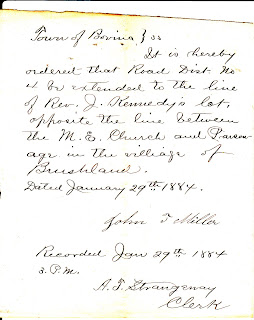 Town of Bovina } ss
It is hereby
ordered that Road Dist. No
4 be extended to the line
of Rev. J. Kennedys lot,
opposite the line between
the M. E. Church and Parson-
age in the village of
Brushland.
Dated January 29th 1884.
John T Miller
Recorded Jan 29th 1884
3. P.M.
A. T. Strangeway
Clerk